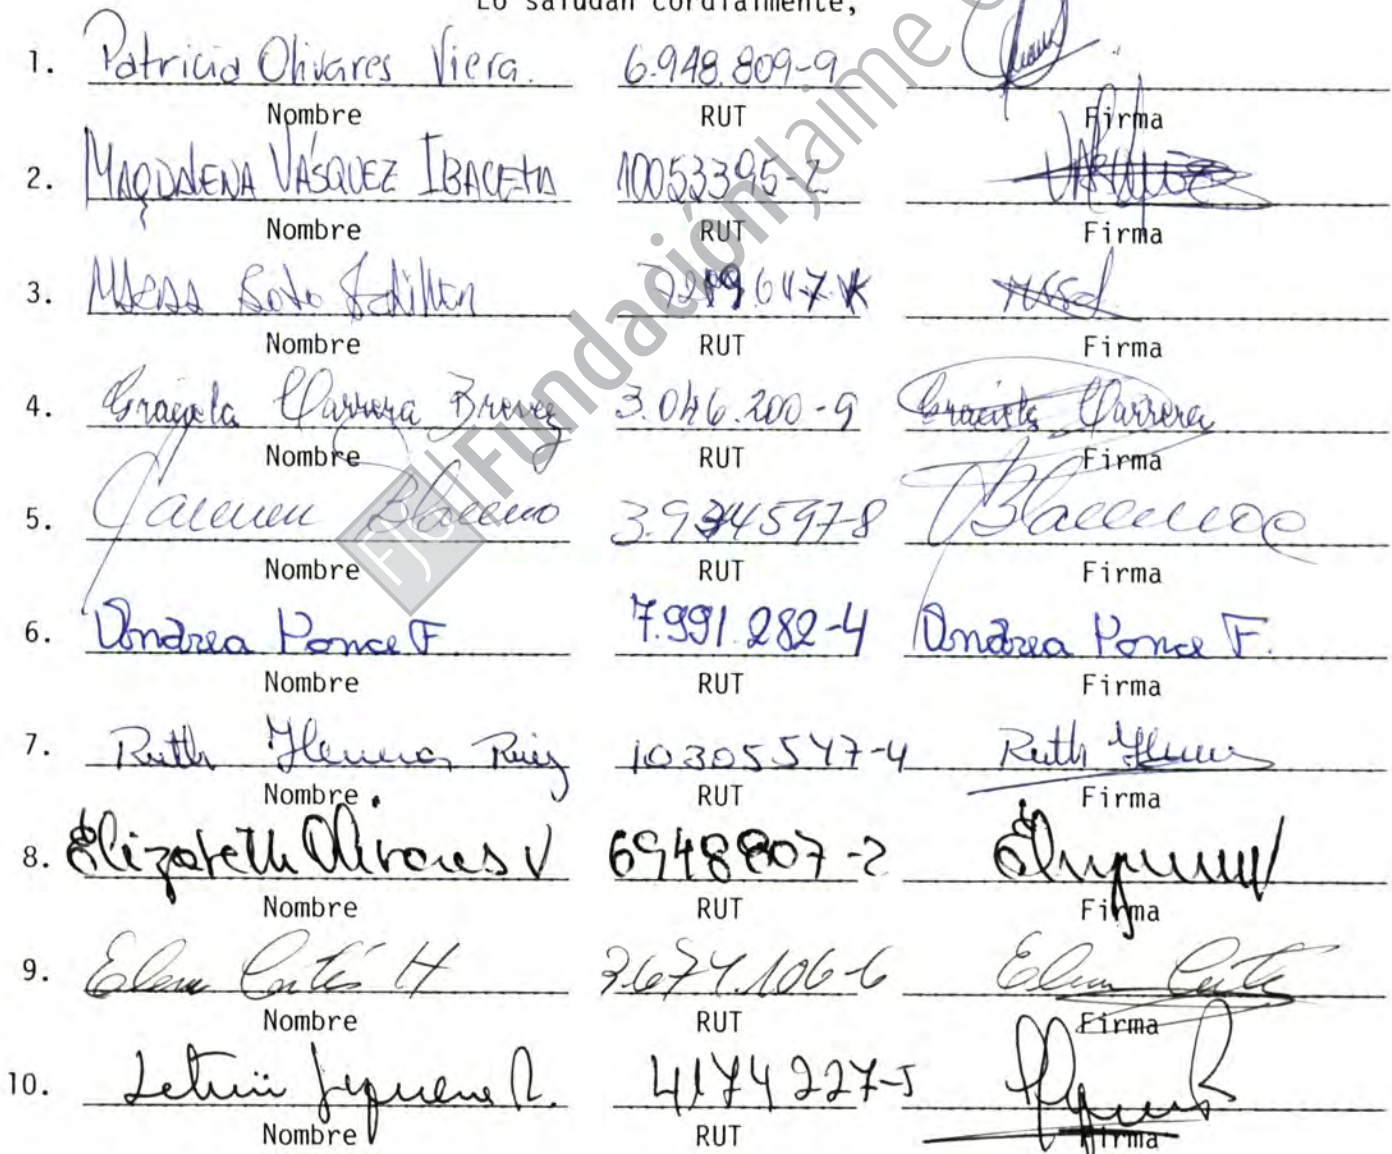 Lo saludan cordialmente,
1. Patricia Olivares Viera. 6.948.809-9
Nombre RUT Firma
2. MAGDALENA VÁSQUEZ IBACETA 10053395-2
Nombre RUT Firma
3. Soto
Nombre RUT Firma
4. Graciela Carrera 3.046.200-9 Graciela Carrera
Nombre RUT Firma
5. Carmen
Nombre RUT Firma
6. Andrea Ponce F. 7.991.282-4 Andrea Ponce F.
Nombre RUT Firma
7. Ruth Ruiz 10305547-4 Ruth
Nombre RUT Firma
8. Elizabeth Olivares V 6948807-2
Nombre RUT Firma
9. Elena Cortés H 3.674.106-6 Elena
Nombre RUT Firma
10. 4174227-5
Nombre RUT Firma
FJG Fundación Jaime